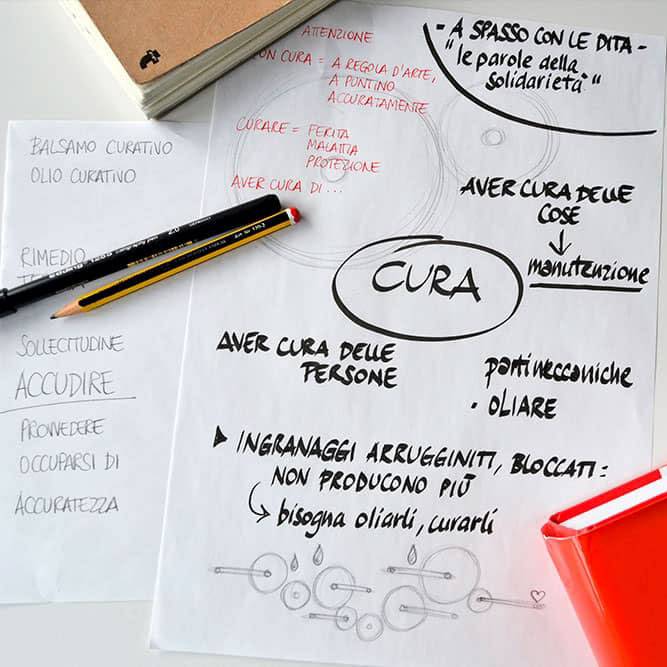 ATTENZIONE
CON CURA = A REGOLA D'ARTE,
A PUNTINO
ACCURATAMENTE
CURARE = FERITA
MALATTIA
PROTEZIONE
AVER CURA DI ...
- A SPASSO CON LE DITA -
"le parole della
solidarietà"
BALSAMO CURATIVO
OLIO CURATIVO
RIMEDIO
SOLLECITUDINE
ACCUDIRE
PROVVEDERE
OCCUPARSI DI
ACCURATEZZA
AVER CURA DELLE
COSE
↓
manutenzione
CURA
AVER CURA DELLE
PERSONE
parti meccaniche
· OLIARE
▶ INGRANAGGI ARRUGGINITI, BLOCCATI =
NON PRODUCONO PIÙ
↳ bisogna oliarli, curarli
2.0